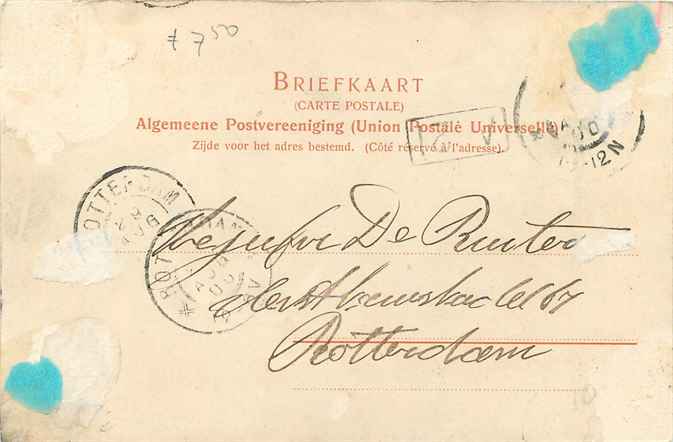 7 50
BRIEFKAART
(CARTE POSTALE)
Algemeene Postvereeniging (Union Postale Universelle)
Zijde voor het adres bestemd. (Côté réservé à l'adresse).
ROTTERDAM
12N
Mejufvr De Ruiter
67
Rotterdam